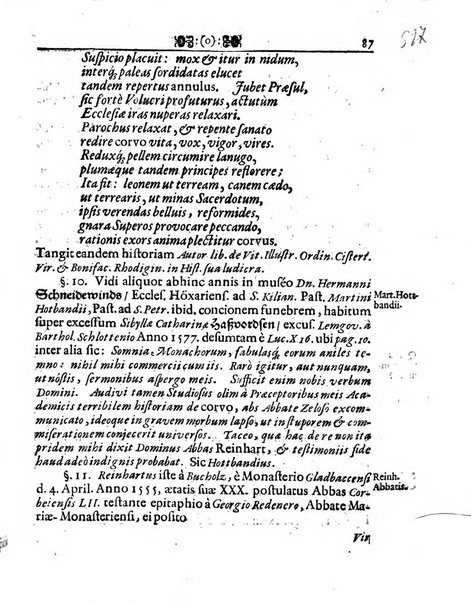 :(o):
87
517
Suspicio placuit: mox & itur in nidum,
interq́; paleas sordidatas elucet
tandem repertus annulus. Jubet Præsul,
sic fortè Volucri profuturus, actutùm
Ecclesiæ iras nuperas relaxari.
Parochus relaxat, & repente sanato
redire corvo vita, vox, vigor, vires.
Reduxq́; pellem circumire lanugo,
plumæque tandem principes reflorere;
Ita fit: leonem ut terream, canem cædo,
ut terrearis, ut minas Sacerdotum,
ipsis verendas belluis, reformides,
gnara Superos provocare peccando,
rationis exors anima plectitur corvus.
Tangit eandem historiam Autor lib. de Vit. Illustr. Ordin. Cistert.
Vir. & Bonifac. Rhodigin. in Hist. sua ludicra.
§. 10. Vidi aliquot abhinc annis in muséo Dn. Hermanni
Schneidewinds / Eccles. Höxariens. ad S. Kilian. Past. Martini
Hotbandii, Past. ad S. Petr. ibid. concionem funebrem, habitum
super excessum Sibyllæ Catharinæ Haßvoordsen / excus. Lemgov. à
Barthol. Schlottenio Anno 1577. desumtam è Luc. X 16. ubi pag. 10.
inter alia sic: Somnia Monachorum, fabulasq́; eorum aniles te-
mno: nihil mihi commercii cum iis. Rarò igitur, aut nunquam,
ut nôstis, sermonibus aspergo meis. Sufficit enim nobis verbum
Domini. Audivi tamen Studiosus olim à Præceptoribus meis Aca-
demicis terribilem historiam de corvo, ab Abbate Zeloso excom-
municato, ideoque in gravem morbum lapso, ut in stuporem & com-
miserationem conjecerit universos. Taceo, qua hac de re non ita
pridem mihi dixit Dominus Abbas Reinhart, & testimoniis sid
haud adeò indignis probabat. Sic Hotbandius.
§. 11. Reinhartus iste à Bucholz, è Monasterio Gladbaccensi
d. 4. April. Anno 1555, ætatis suæ XXX. postulatus Abbas Cor-
beiensis LII. testante epitaphio à Georgio Redenero, Abbate Ma-
riæ-Monasteriensi, ei posito
Vir
Mart. Hot-
bandii.
Reinh.
Abbatis.